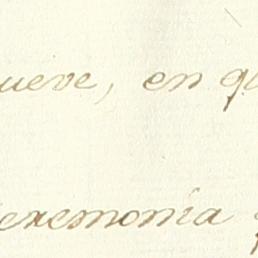 ueve, en qu
eremonia